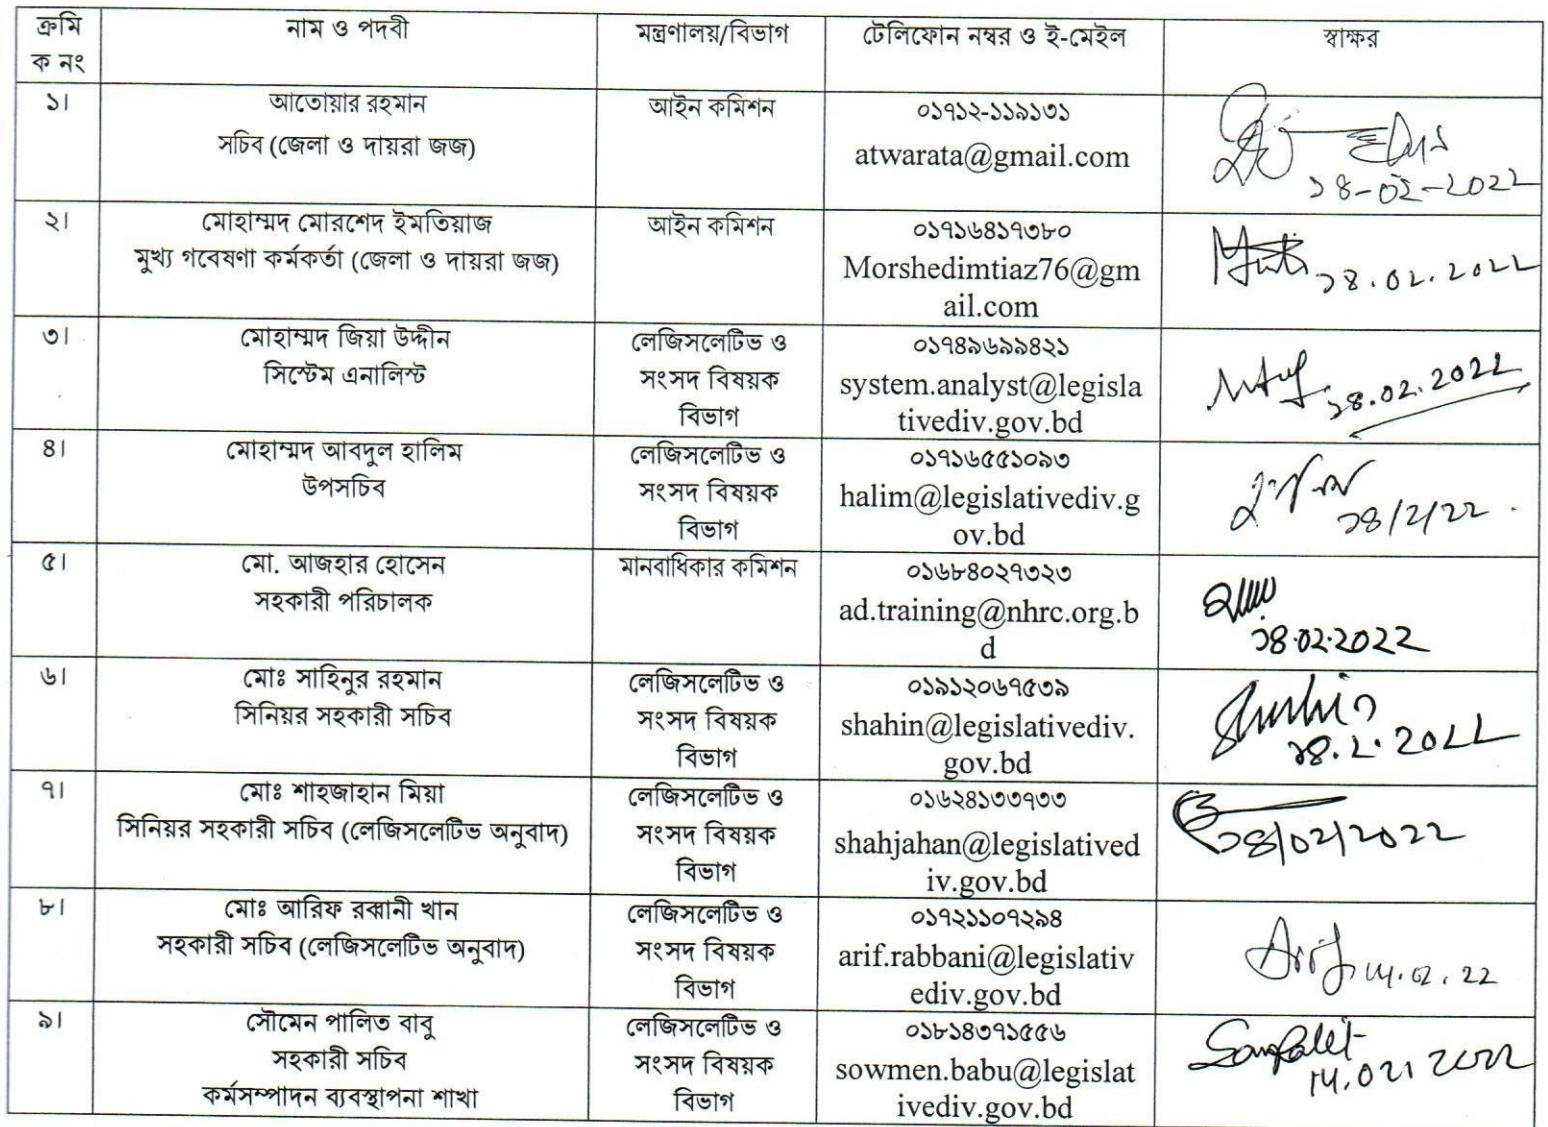 ক্রমি
ক নং
নাম ও পদবী
মন্ত্রণালয়/বিভাগ
টেলিফোন নম্বর ও ই-মেইল
স্বাক্ষর
১।
আতোয়ার রহমান
সচিব (জেলা ও দায়রা জজ)
আইন কমিশন
০১৭১২-১১৯১৩১
atwarata@gmail.com
১৪-০২-২০২২
২।
মোহাম্মদ মোরশেদ ইমতিয়াজ
মুখ্য গবেষণা কর্মকর্তা (জেলা ও দায়রা জজ)
আইন কমিশন
০১৭১৬৪১৭৩৮০
Morshedimtiaz76@gm
ail.com
১৪.০২.২০২২
৩।
মোহাম্মদ জিয়া উদ্দীন
সিস্টেম এনালিস্ট
লেজিসলেটিভ ও
সংসদ বিষয়ক
বিভাগ
০১৭৪৯৬৯৯৪২১
system.analyst@legisla
tivediv.gov.bd
১৪.০২.২০২২
৪।
মোহাম্মদ আবদুল হালিম
উপসচিব
লেজিসলেটিভ ও
সংসদ বিষয়ক
বিভাগ
০১৭১৬৫৫১০৯৩
halim@legislativediv.g
ov.bd
১৪/২/২২
৫।
মো. আজহার হোসেন
সহকারী পরিচালক
মানবাধিকার কমিশন
০১৬৮৪০২৭৩২৩
ad.training@nhrc.org.b
d
১৪.০২.২০২২
৬।
মোঃ সাহিনুর রহমান
সিনিয়র সহকারী সচিব
লেজিসলেটিভ ও
সংসদ বিষয়ক
বিভাগ
০১৯১২০৬৭৫৩৯
shahin@legislativediv.
gov.bd
১৪.২.২০২২
৭।
মোঃ শাহজাহান মিয়া
সিনিয়র সহকারী সচিব (লেজিসলেটিভ অনুবাদ)
লেজিসলেটিভ ও
সংসদ বিষয়ক
বিভাগ
০১৬২৪১৩৩৭৩৩
shahjahan@legislatived
iv.gov.bd
১৪/০২/২০২২
৮।
মোঃ আরিফ রব্বানী খান
সহকারী সচিব (লেজিসলেটিভ অনুবাদ)
লেজিসলেটিভ ও
সংসদ বিষয়ক
বিভাগ
০১৭২১১০৭২৯৪
arif.rabbani@legislativ
ediv.gov.bd
Arif 14.02.22
৯।
সৌমেন পালিত বাবু
সহকারী সচিব
কর্মসম্পাদন ব্যবস্থাপনা শাখা
লেজিসলেটিভ ও
সংসদ বিষয়ক
বিভাগ
০১৮১৪৩৭১৫৫৬
sowmen.babu@legislat
ivediv.gov.bd
14.02.2022